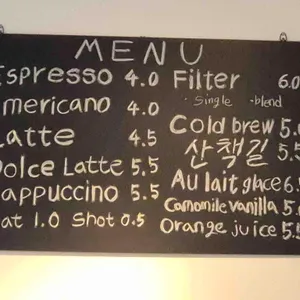 MENU
Espresso 4.0
Americano 4.0
Latte 4.5
Dolce Latte 5.5
Cappuccino 5.5
1.0 Shot 0.5
Filter 6.0
· single · blend
Cold brew 5.
산책길 5.5
Au lait glace 6.
Camomile vanilla 5.
Orange juice 5.5